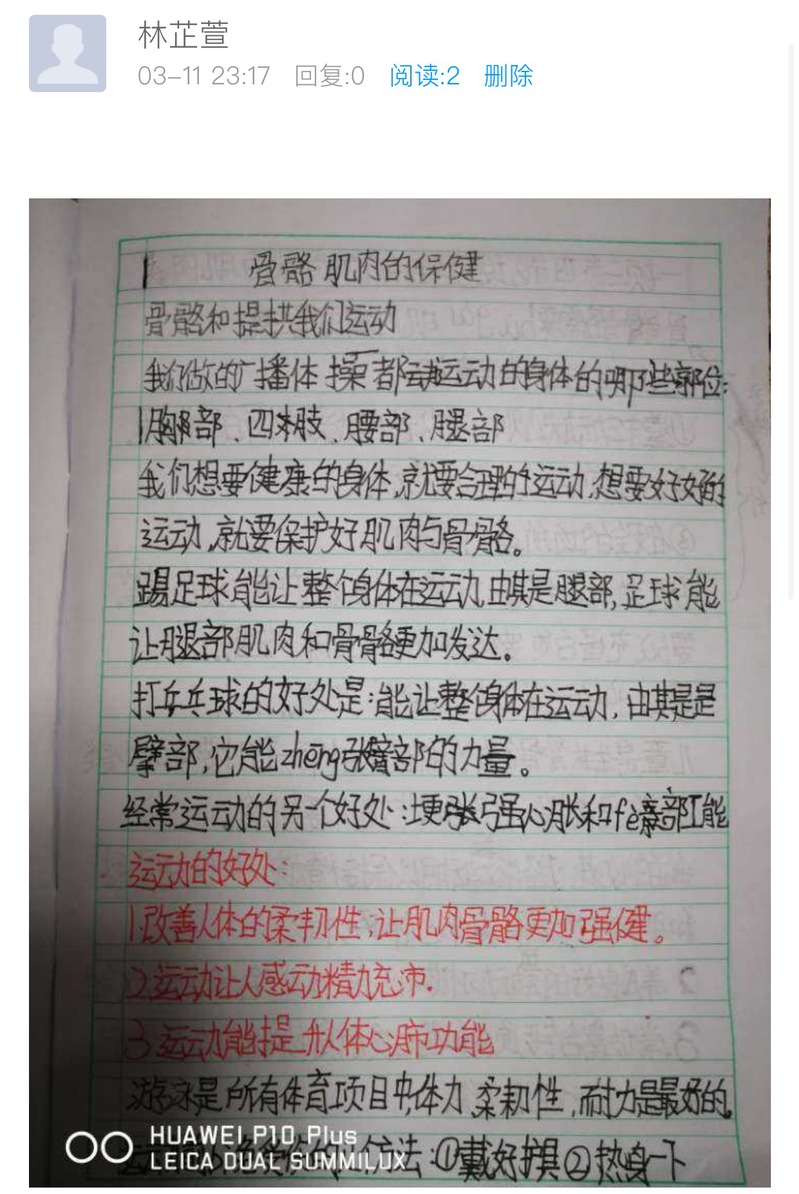 林芷萱
03-11 23:17 回复:0 阅读:2 删除
骨骼肌肉的保健
骨骼和提拱我们运动
我们做的广播体操都运动的身体的哪些部位:
胸部、四肢、腰部、腿部
我们想要健康的身体,就要合理的运动,想要好好的
运动,就要保护好肌肉与骨骼。
踢足球能让整个身体在运动,由其是腿部,足球能
让腿部肌肉和骨骼更加发达。
打乒乓球的好处是:能让整个身体在运动,由其是
臂部,它能zhēng张臂部的力量。
经常运动的另个好处:强心胀和fèi部工能
运动的好处:
1.改善人体的柔韧性,让肌肉骨骼更加强健。
2.运动让人感动精力充沛.
3.运动能提升人体心肺功能
游泳是所有体育项目中体力,柔韧性,耐力是最好的。
方法:①戴好护具②热身一下
HUAWEI P10 Plus
LEICA DUAL SUMMILUX